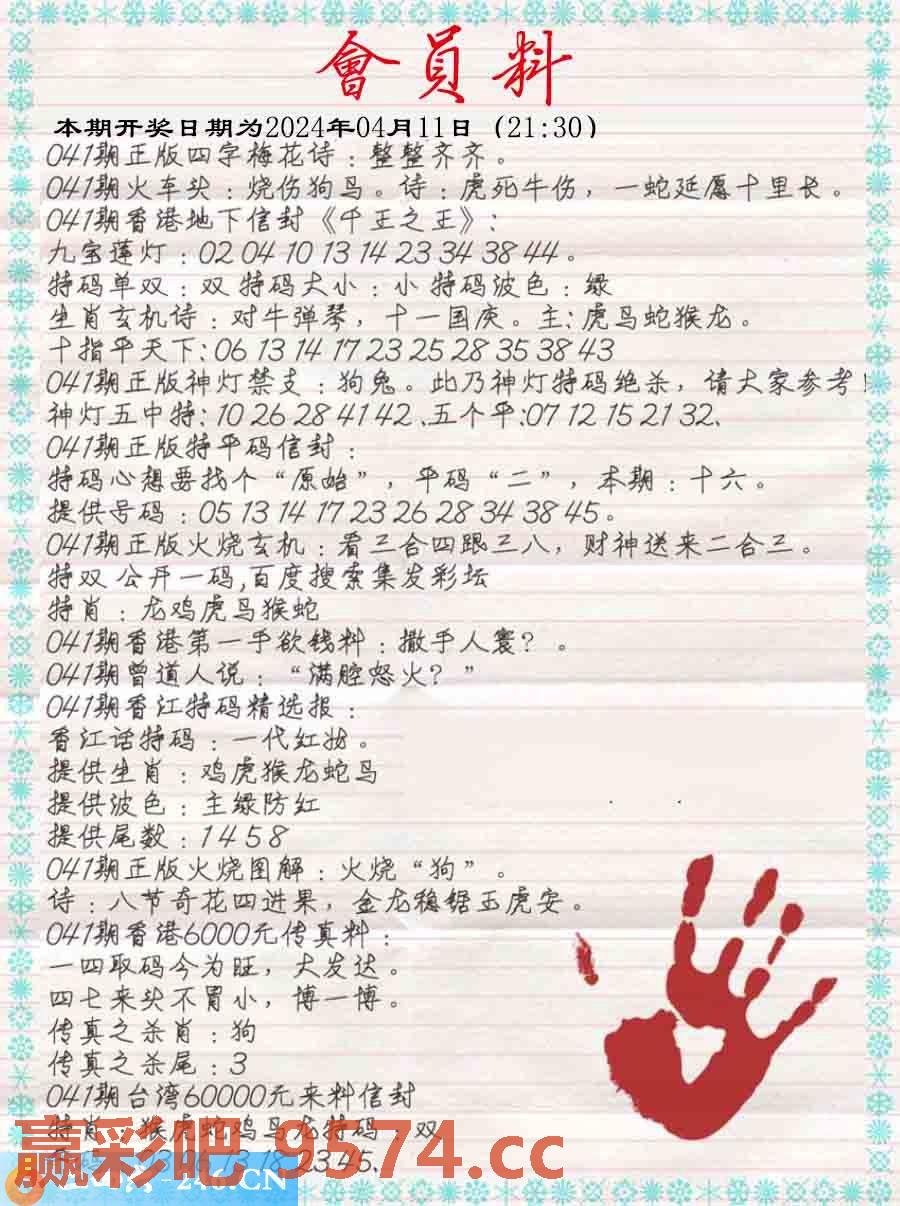 會員料
本期开奖日期为2024年04月11日（21:30）
041期正版四字梅花诗：整整齐齐。
041期火车头：烧伤狗马。诗：虎死牛伤，一蛇延愿十里长。
041期香港地下信封《千王之王》：
九宝莲灯：02 04 10 13 14 23 34 38 44。
特码单双：双 特码大小：小 特码波色：绿
生肖玄机诗：对牛弹琴，十一国庆。主：虎马蛇猴龙。
十指平天下：06 13 14 17 23 25 28 35 38 43
041期正版神灯禁支：狗兔。此乃神灯特码绝杀，请大家参考！
神灯五中特：10 26 28 41 42、五个平：07 12 15 21 32、
041期正版特平码信封：
特码心想要找个“原始”，平码“二”，本期：十六。
提供号码：05 13 14 17 23 26 28 34 38 45。
041期正版火烧玄机：看三合四跟三八，财神送来二合三。
特双 公开一码,百度搜索集发彩坛
特肖：龙鸡虎马猴蛇
041期香港第一手欲钱料：撒手人寰？。
041期曾道人说：“满腔怒火？”
041期香江特码精选报：
香江话特码：一代红妆。
提供生肖：鸡虎猴龙蛇马
提供波色：主绿防红
提供尾数：1 4 5 8
041期正版火烧图解：火烧“狗”。
诗：八节奇花四进果，金龙稳锯玉虎安。
041期香港6000元传真料：
一四取码今为旺，大发达。
四七来头不冒小，博一博。
传真之杀肖：狗
传真之杀尾：3
041期台湾60000元来料信封
特肖：猴虎蛇鸡马龙特码：双
06 13 18 23 45、
赢彩吧.9574.cc
246.CN